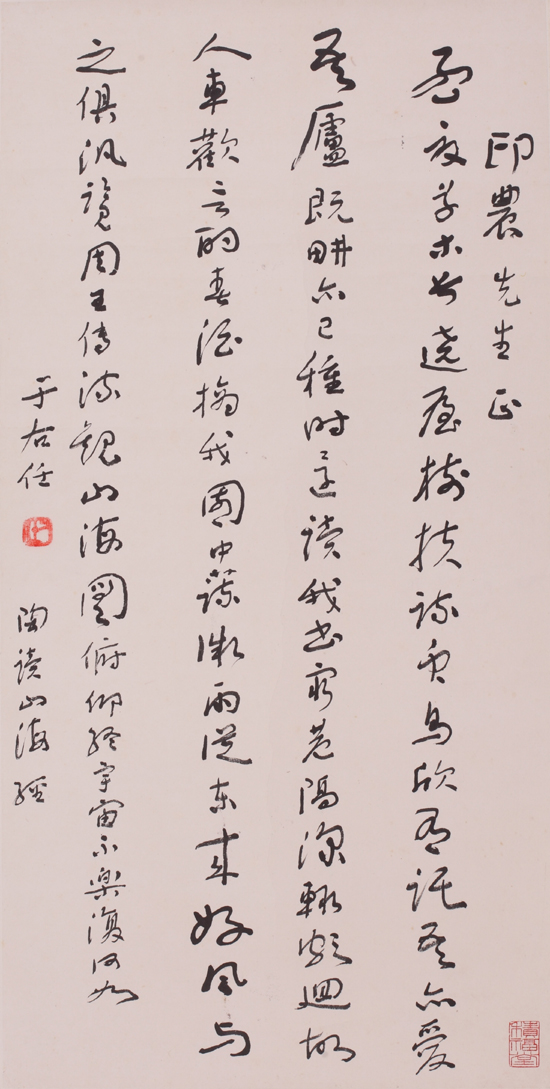 印農先生正
孟夏草木長遶屋樹扶疏眾鳥欣有託吾亦愛
吾廬既畊亦已種時還讀我書窮巷隔深轍頗迴故
人車歡言酌春酒摘我園中蔬微雨從東來好風与
之俱汎覽周王傳流觀山海圖俯仰終宇宙不樂復何如
于右任
陶讀山海經